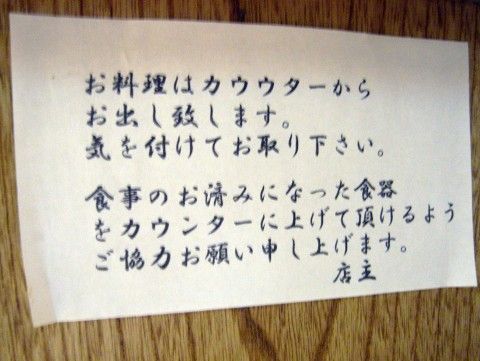 お料理はカウウターから
お出し致します。
気を付けてお取り下さい。
食事のお済みになった食器
をカウンターに上げて頂けるよう
ご協力お願い申し上げます。
店主